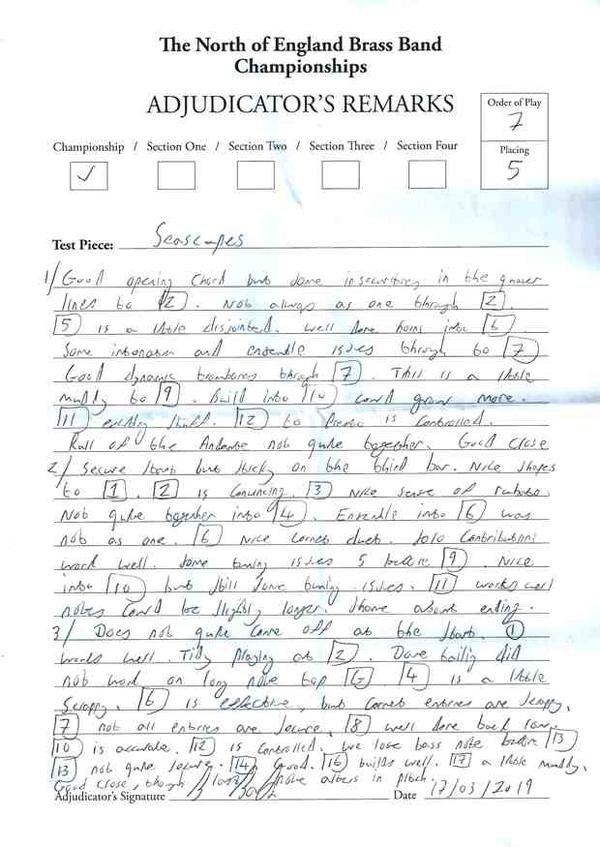 The North of England Brass Band
Championships
ADJUDICATOR'S REMARKS
Order of Play
7
Championship / Section One / Section Two / Section Three / Section Four
Placing
✓
5
Test Piece: Seascapes
1/ Good opening chord but some insecurities in the quaver
lines to [2]. Not always as one through [2].
[5] is a little disjointed. Well done horns into [6]
Some intonation and ensemble issues through to [7]
Good dynamic trombones through [7]. This is a little
muddy to [9]. Build into [10] could grow more.
[11] exciting stuff. [12] to Presto is controlled.
Rall of the Andante not quite together. Good close
2/ Secure start but sticky on the third bar. Nice shapes
to [1]. [2] is convincing. [3] Nice sense of rubato
Not quite together into [4]. Ensemble into [6] was
not as one. [6] Nice cornet duet. Solo contributions
work well. Some tuning issues 5 before [9]. Nice
into [10] but still some tuning issues. [11] works well
notes could be slightly longer. Shame about ending.
3/ Does not quite come off at the start. (1)
works well. Tidy playing at [2]. Does not
not work on long note top [4] is a little
scrappy. [6] is effective, but cornet entries are scrappy.
[7] not all entries are secure. [8] well done back row.
[10] is accurate. [12] is controlled. We lose bass note before [13]
[13] not quite secure. [14] Good. [16] builds well. [17] a little muddy.
Good close, though in pitch.
Adjudicator's Signature
Date 17/03/2019